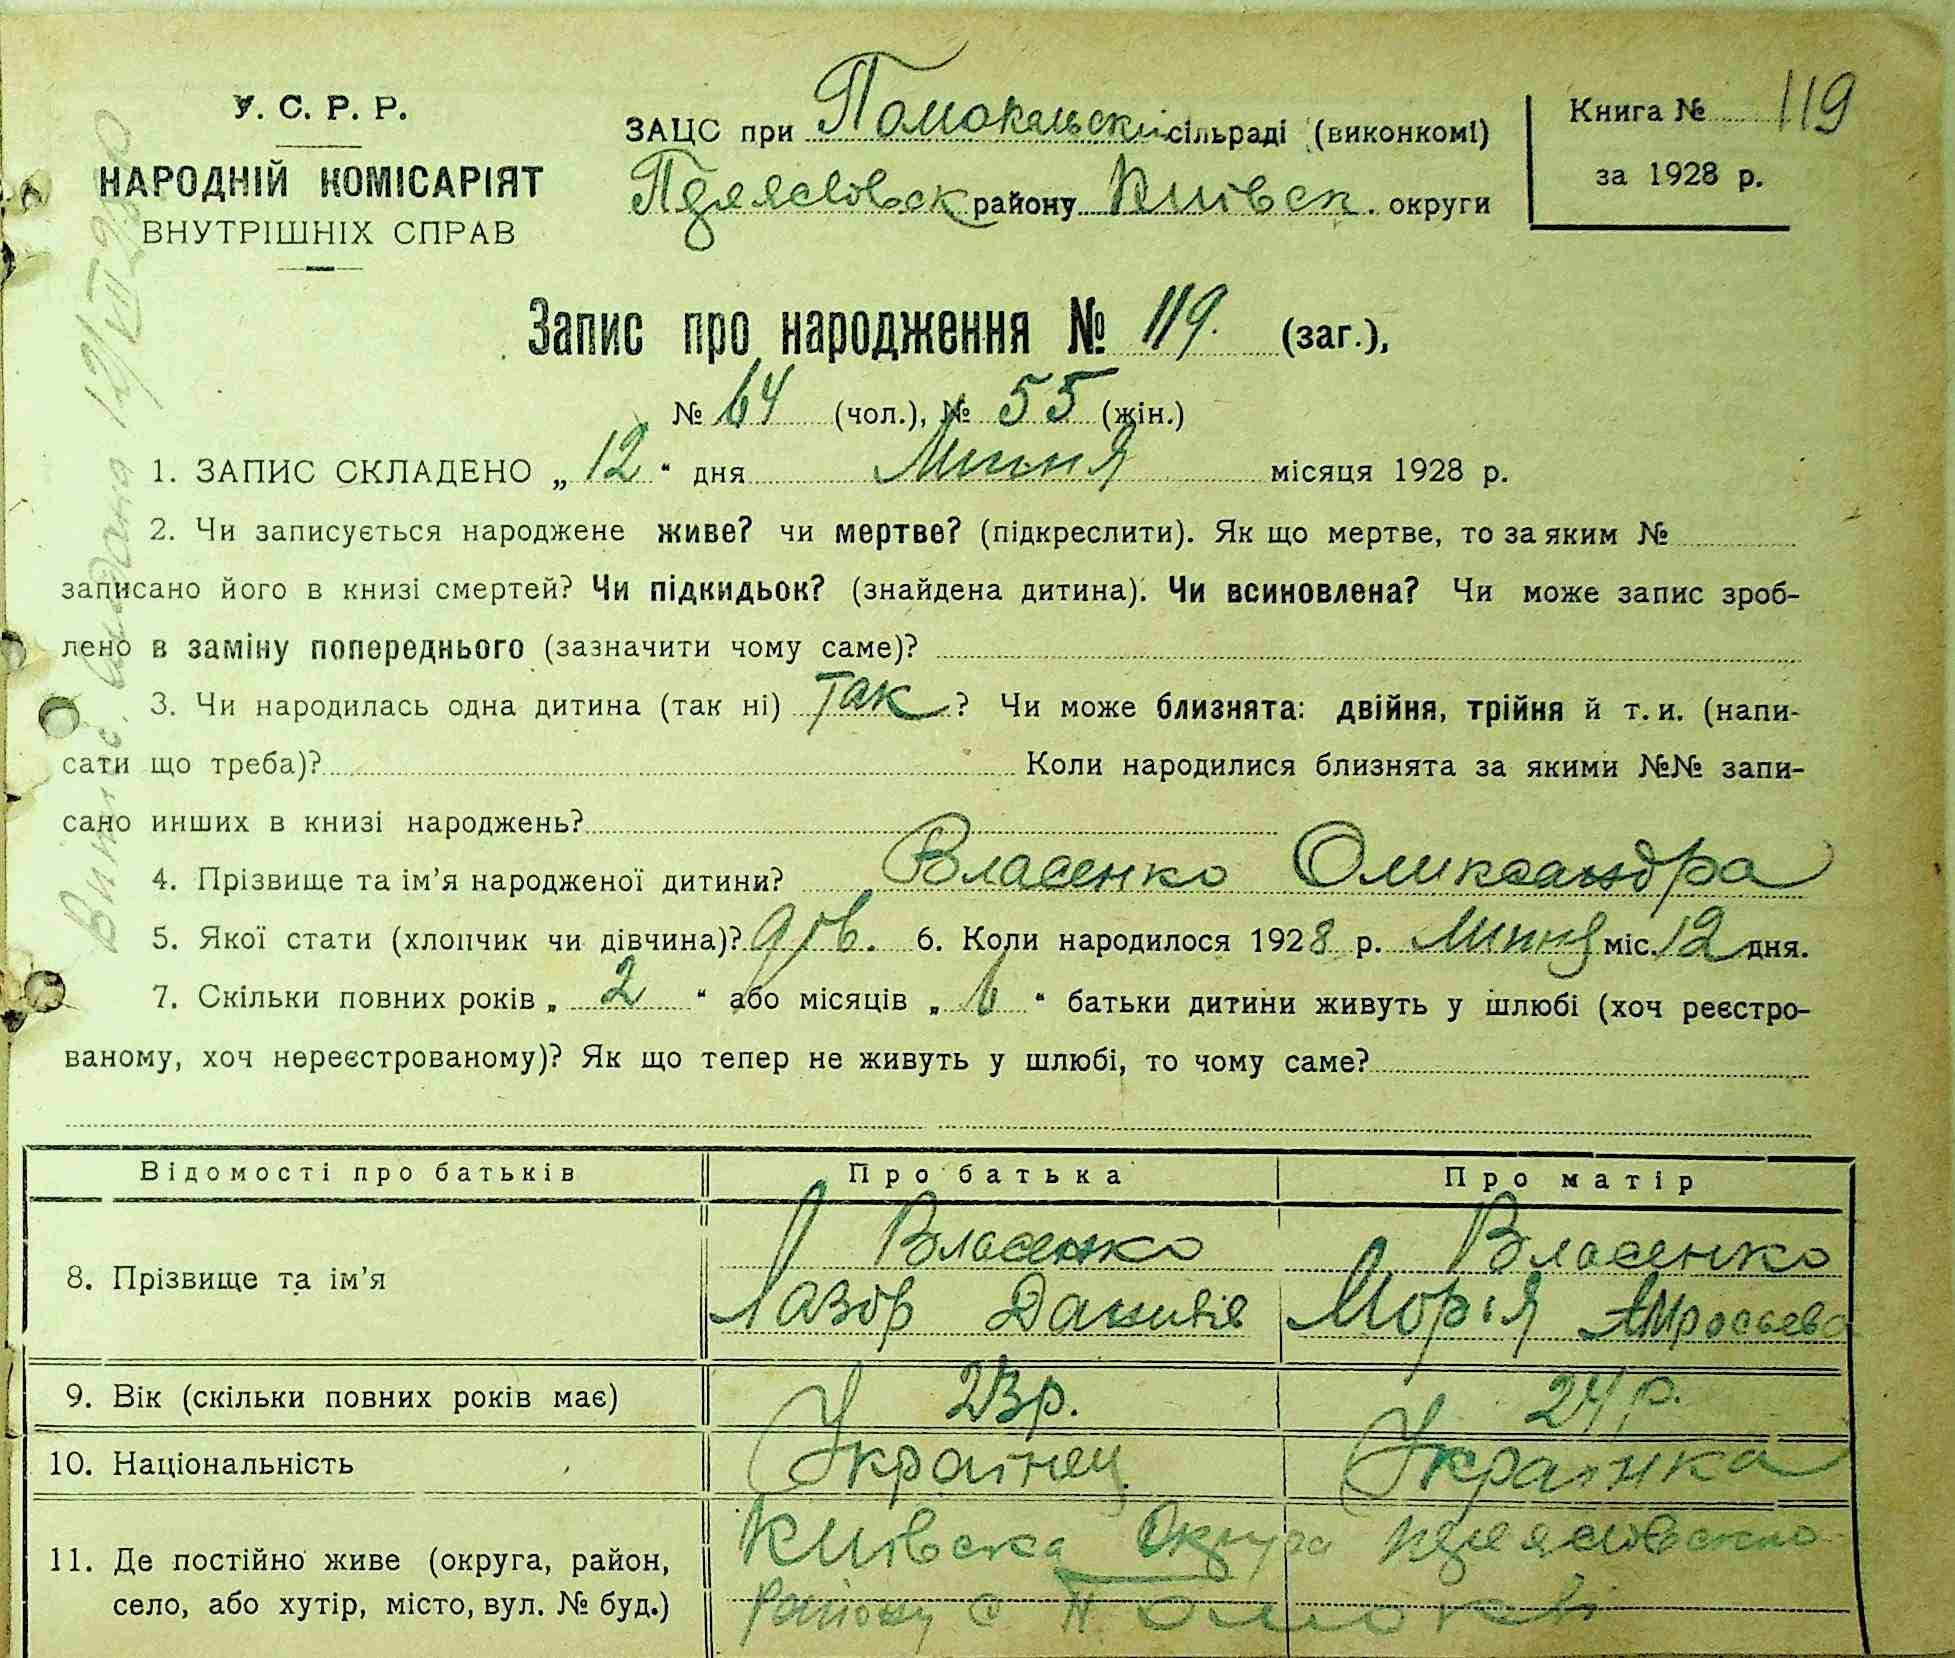 У. С. Р. Р.
НАРОДНІЙ КОМІСАРІЯТ
ВНУТРІШНІХ СПРАВ
ЗАЦС при Помокельскій сільраді (виконкомі)
району Київск. округи
Книга № 119
за 1928 р.
Запис про народження № 119. (заг.),
№ 64 (чол.), № 55 (жін.)
1. ЗАПИС СКЛАДЕНО „ 12 “ дня Липня місяця 1928 р.
2. Чи записується народжене живе? чи мертве? (підкреслити). Як що мертве, то за яким №
записано його в книзі смертей? Чи підкидьок? (знайдена дитина). Чи всиновлена? Чи може запис зроб-
лено в заміну попереднього (зазначити чому саме)?
3. Чи народилась одна дитина (так ні) Так ? Чи може близнята: двійня, трійня й т. и. (напи-
сати що треба)? Коли народилися близнята за якими №№ запи-
сано инших в книзі народжень?
4. Прізвище та ім’я народженої дитини? Власенко Олександра
5. Якої стати (хлопчик чи дівчина)? дів. 6. Коли народилося 1928 р. Липня міс. 12 дня.
7. Скільки повних років „ 2 “ або місяців „ “ батьки дитини живуть у шлюбі (хоч реєстро-
ваному, хоч нереєстрованому)? Як що тепер не живуть у шлюбі, то чому саме?
Відомості про батьків Про батька Про матір
8. Прізвище та ім’я
Власенко Власенко
Лазор Данилів Морія
9. Вік (скільки повних років має) 23 р. 24 р.
10. Національність Українец Українка
11. Де постійно живе (округа, район,
село, або хутір, місто, вул. № буд.)
Київска Округа
Району с Помоклі